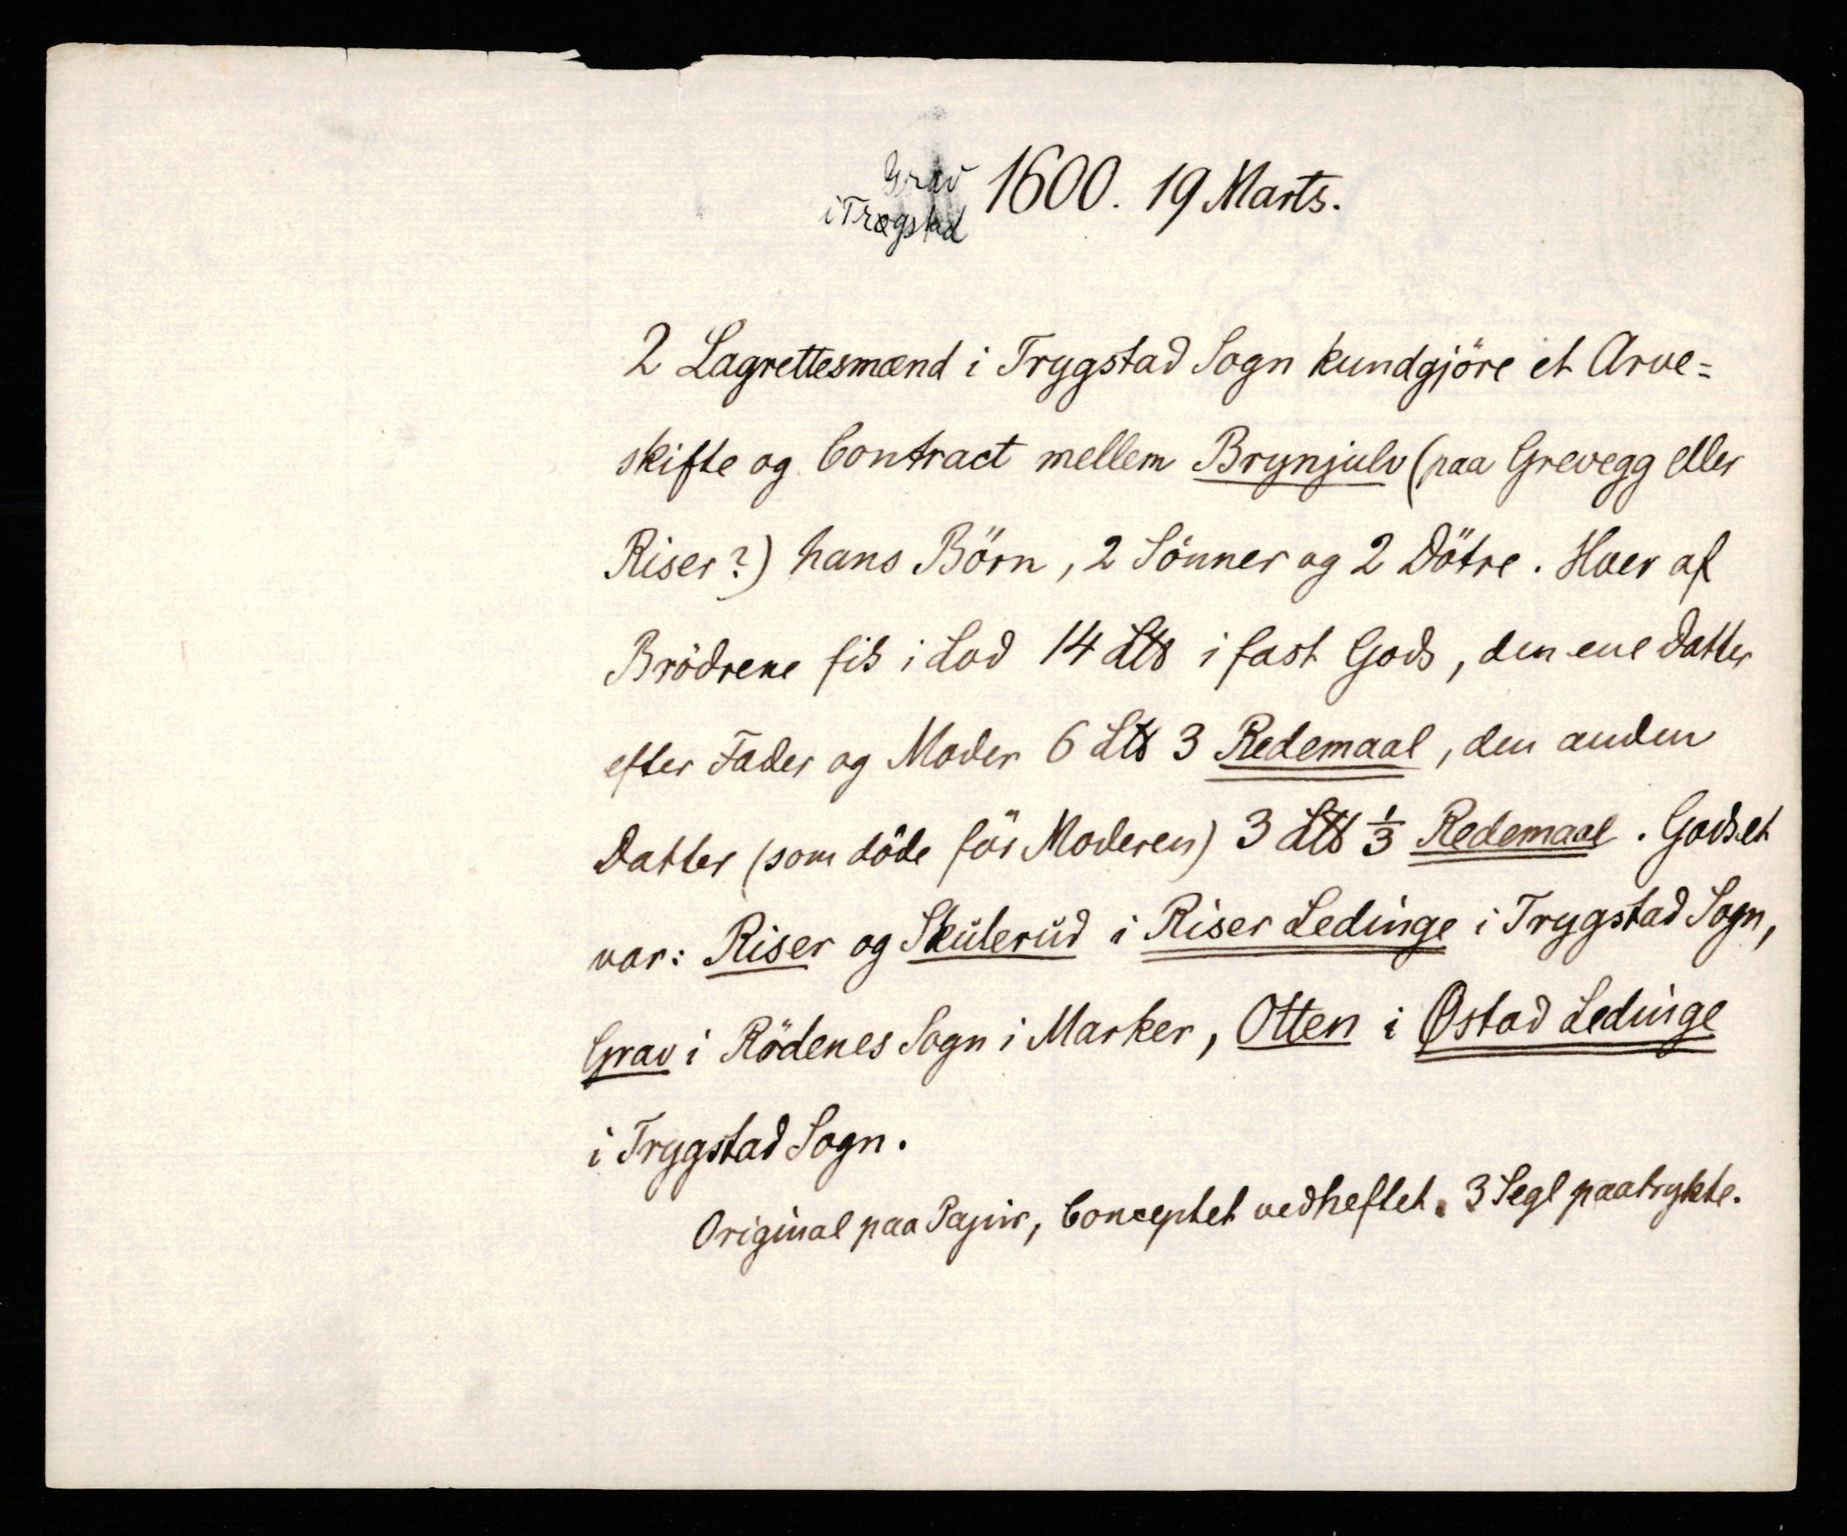 Grav
i Trøgstad
1600. 19 Marts.
2 Lagrettesmænd i Trygstad Sogn kundgjöre et Arve=
skifte og Contract mellem Brynjulv (paa Grevegg eller
Riser?) hans Börn, 2 Sönner og 2 Dötre. Hver af
Brödrene fik i Lod 14 Lts i fast Gods, den ene Datter
efter Fader og Moder 6 Lts 3 Redemaal, den anden
Datter (som döde för Moderen) 3 Lts 1/3 Redemaal. Godset
var: Riser og Skulerud i Riser Ledinge i Trygstad Sogn,
Grav i Rödenes Sogn i Marker, Otten i Østad Ledinge
i Trygstad Sogn.
Original paa Papir, Conceptet vedheftet. 3 Segl paatrykte.